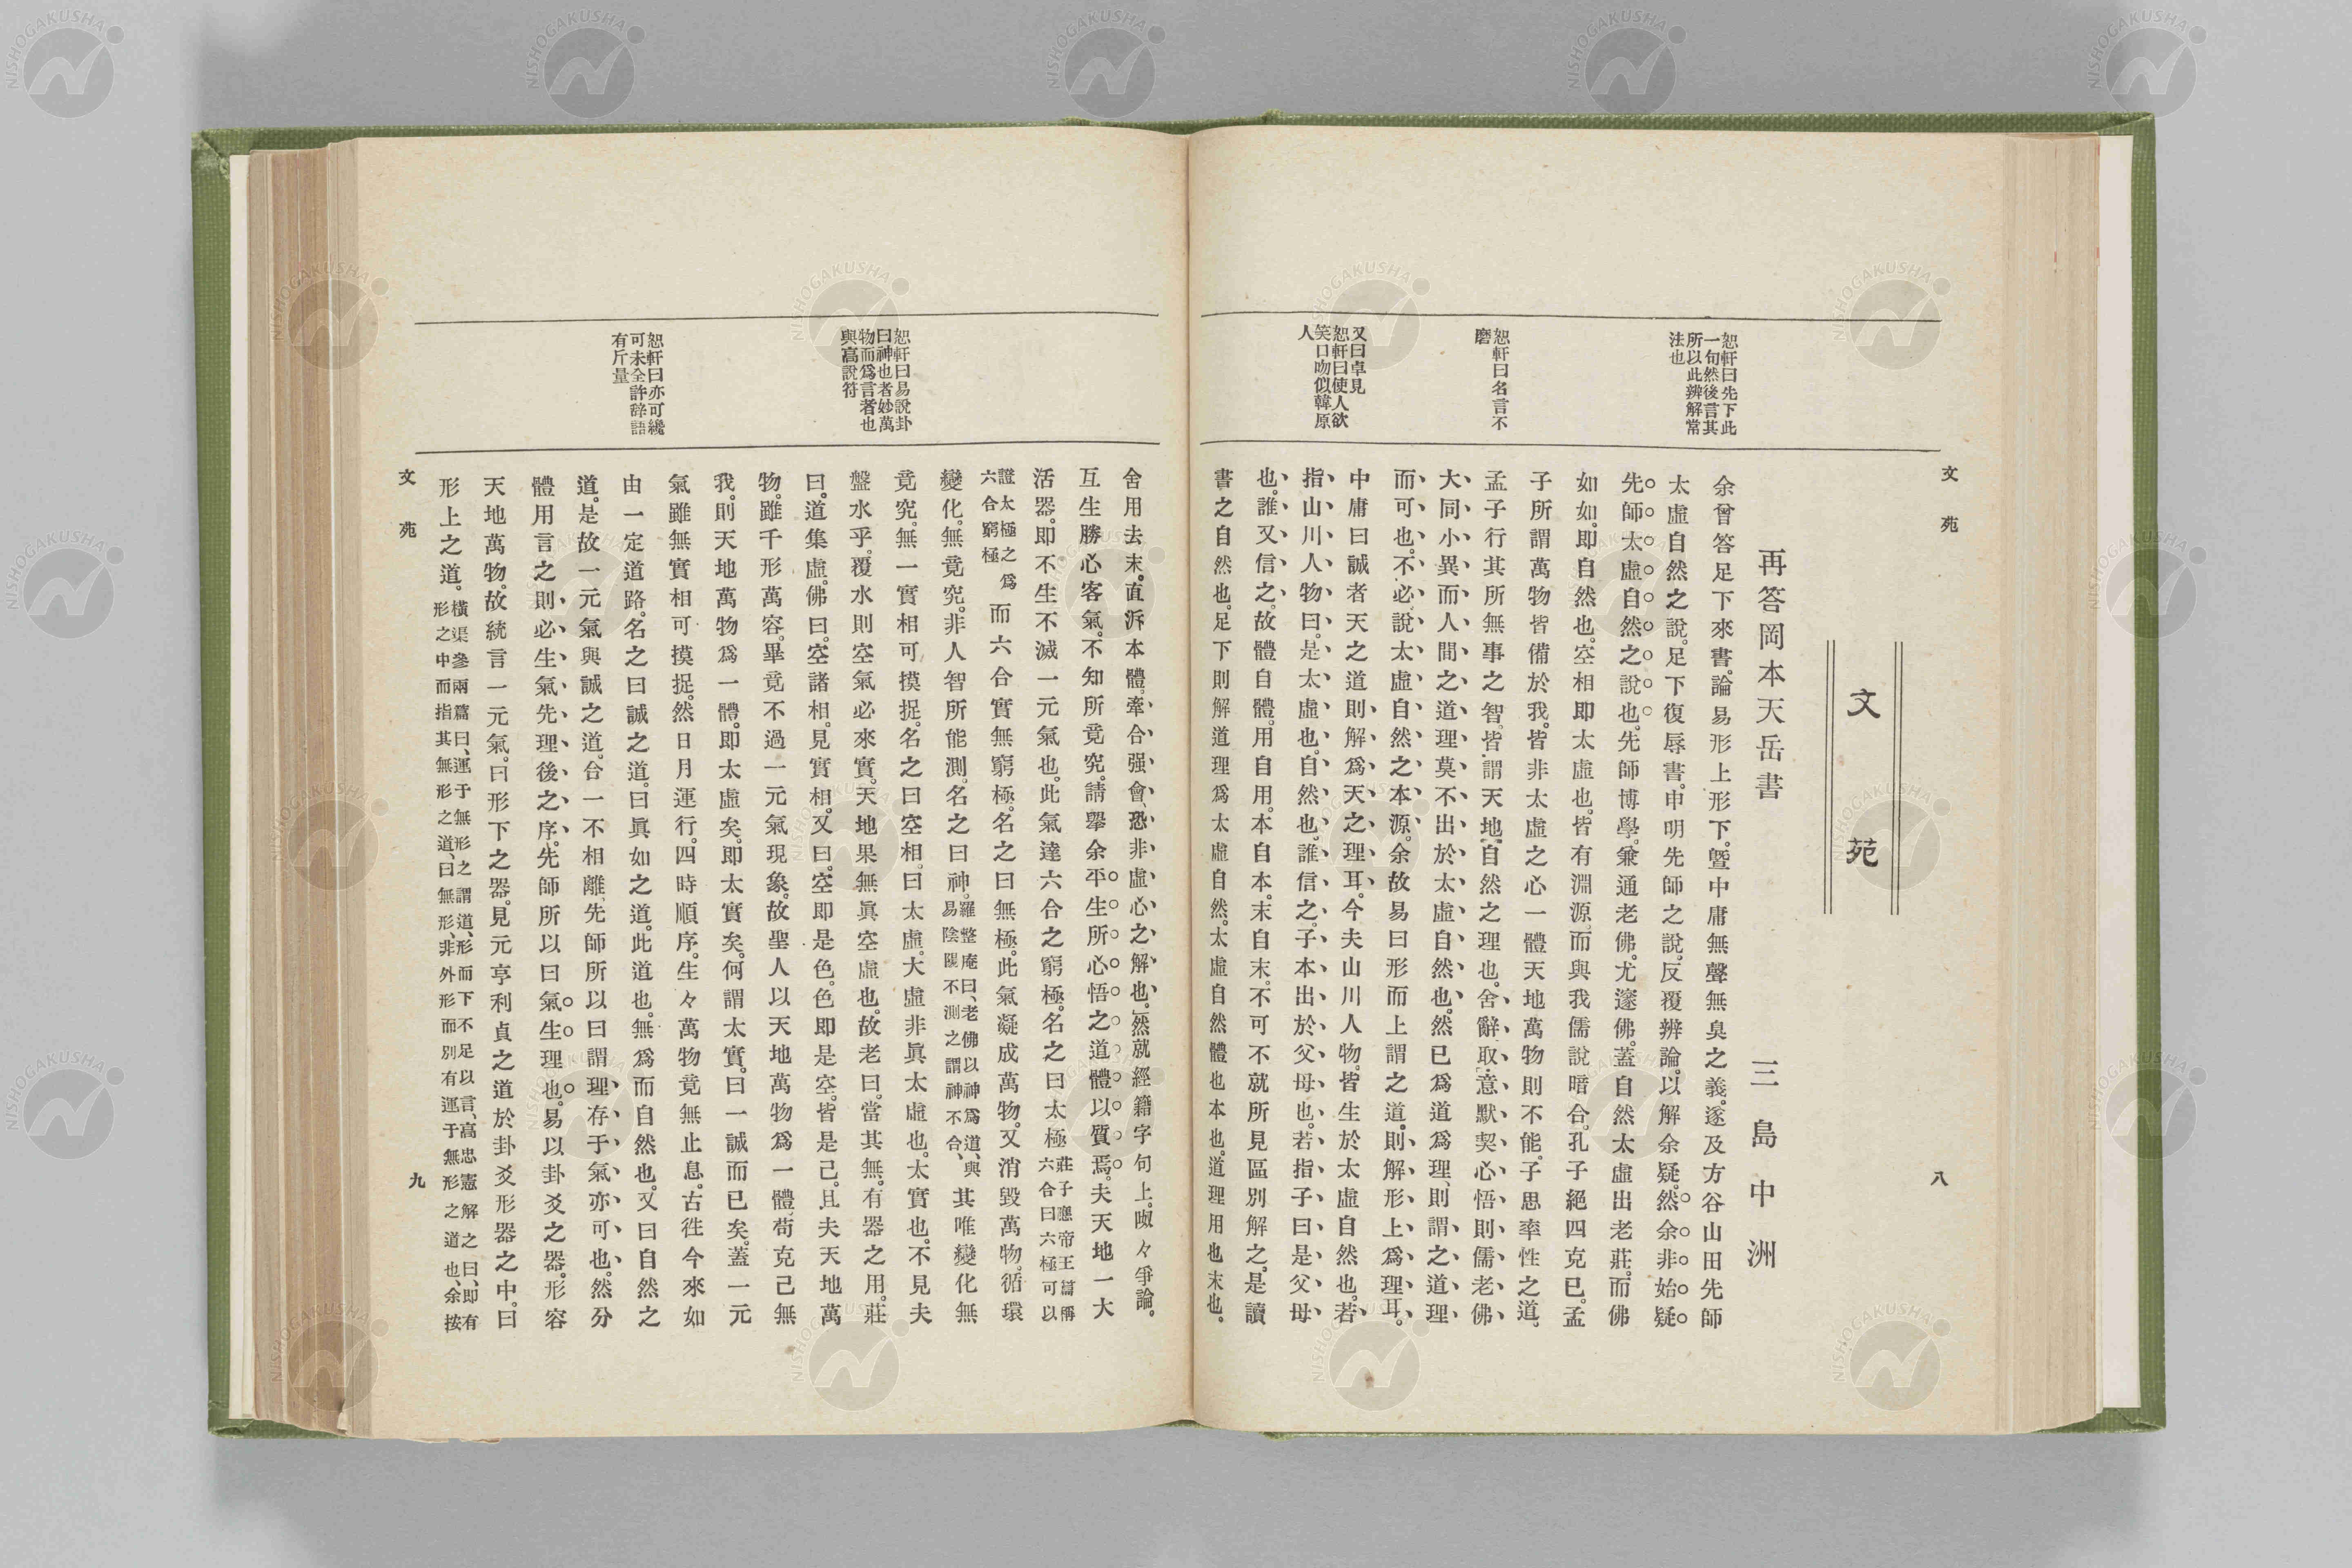 文苑
八
文苑
再答岡本天岳書
三島中洲
恕軒曰先下此
一句然後言其
所以此辨解常
法也
恕軒曰名言不
磨
又曰卓見
恕軒曰使人欲
笑口吻似韓原
人
余曾答足下來書。論易形上形下。曁中庸無聲無臭之義。遂及方谷山田先師
太虛自然之說。足下復辱書。申明先師之說。反覆辨論。以解余疑。然余非始疑
先師太虛自然之說也。先師博學。兼通老佛。尤邃佛。蓋自然太虛出老莊。而佛
如如。即自然也。空相即太虛也。皆有淵源。而與我儒說暗合。孔子絕四克已。孟
子所謂萬物皆備於我。皆非太虛之心一體天地萬物則不能。子思率性之道。
孟子行其所無事之智。皆謂天地自然之理也。舍辭取意。默契心悟。則儒老佛
大同小異。而人間之道理。莫不出於太虛自然也。然已爲道爲理、則謂之道理
而可也。不必說太虛自然之本源。余故易曰形而上謂之道。則解形上爲理耳。
中庸曰誠者天之道則解爲天之理耳。今夫山川人物。皆生於太虛自然也。若
指山川人物曰。是太虛也。自然也。誰信之。子本出於父母也。若指子曰。是父母
也。誰又信之。故體自體。用自用。本自本。末自末。不可不就所見區別解之。是讀
書之自然也。足下則解道理爲太虛自然。太虛自然體也本也。道理用也末也。
舍用去末。直泝本體。牽合强會、恐非虛心之解也。然就經籍字句上。呶々爭論。
互生勝心客氣。不知所竟究。請舉余平生所心悟之道體以質焉。夫天地一大
活器。即不生不滅一元氣也。此氣達六合之窮極。名之曰太極莊子應帝王篇稱六合曰六極可以
證太極之爲六合窮極而六合實無窮極。名之曰無極。此氣凝成萬物。又消毀萬物。循環
變化。無竟究。非人智所能測。名之曰神。羅整庵曰、老佛以神爲道、與易陰陽不測之謂神不合、其唯變化無
竟究。無一實相可摸捉。名之曰空相。曰太虛。大虛非眞太虛也。太實也。不見夫
盤水乎。覆水則空氣必來實。天地果無眞空虛也。故老曰。當其無。有器之用。莊
曰。道集虛。佛曰。空諸相。見實相。又曰。空即是色。色即是空。皆是己。且夫天地萬
物。雖千形萬容。畢竟不過一元氣現象。故聖人以天地萬物爲一體。苟克己無
我。則天地萬物爲一體。即太虛矣。即太實矣。何謂太實。曰一誠而已矣。蓋一元
氣雖無實相可摸捉。然日月運行。四時順序。生々萬物竟無止息。古徃今來如
由一定道路。名之曰誠之道。曰眞如之道。此道也。無爲而自然也。又曰自然之
道。是故一元氣與誠之道。合一不相離。先師所以曰謂理存于氣亦可也。然分
體用言之則必生氣先理後之序。先師所以曰氣生理也。易以卦爻之器。形容
天地萬物。故統言一元氣。曰形下之器。見元亨利貞之道於卦爻形器之中。曰
形上之道。橫渠參兩篇曰、運于無形之謂道、形而下不足以言、高忠憲解之曰、即有形之中而指其無形之道、曰無形、非外形而別有運于無形之道也、余按
恕軒曰易說卦
曰神也者妙萬
物而爲言者也
與高說符
恕軒曰亦可纔
可未全許辭語
有斤量
文苑
九